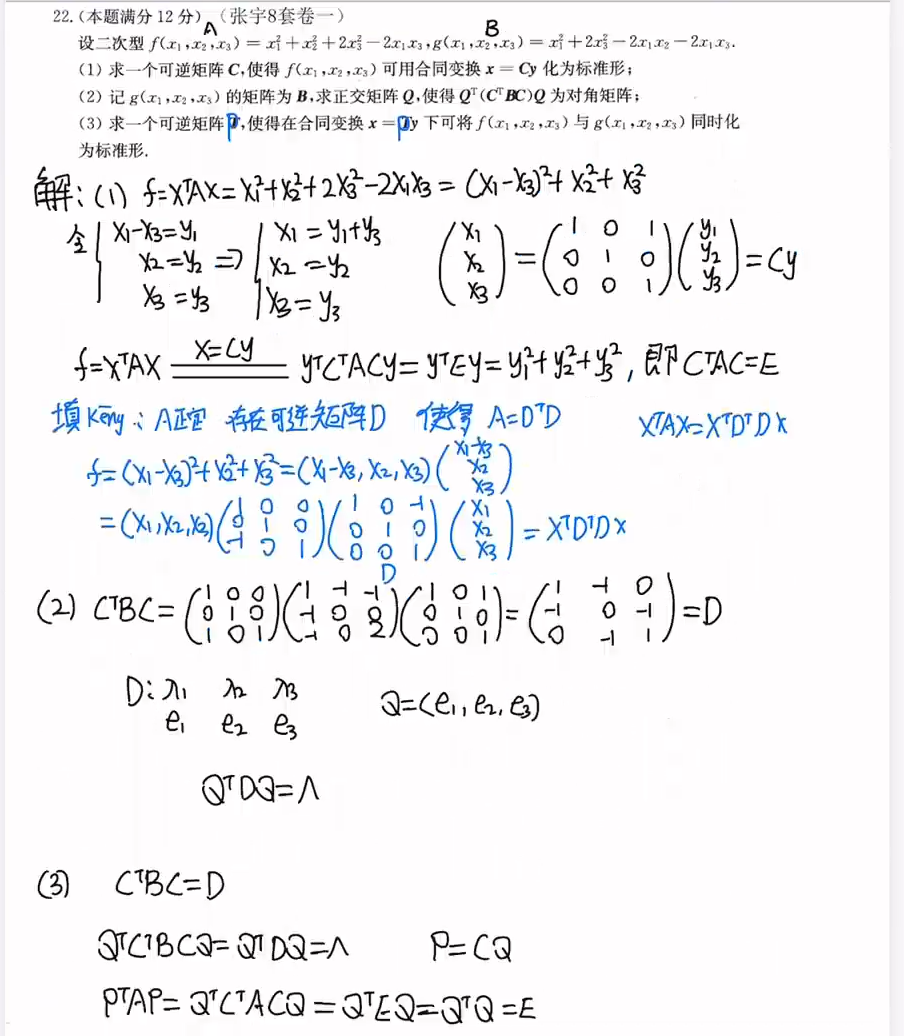 22.(本题满分 12 分) (张宇8套卷一)
A B
设二次型 f(x₁,x₂,x₃)=x₁²+x₂²+2x₃²-2x₁x₃,g(x₁,x₂,x₃)=x₁²+2x₃²-2x₁x₂-2x₁x₃.
(1) 求一个可逆矩阵 C,使得 f(x₁,x₂,x₃) 可用合同变换 x=Cy 化为标准形;
(2) 记 g(x₁,x₂,x₃) 的矩阵为 B,求正交矩阵 Q,使得 Qᵀ(CᵀBC)Q 为对角矩阵;
(3) 求一个可逆矩阵 P,使得在合同变换 x=Py 下可将 f(x₁,x₂,x₃) 与 g(x₁,x₂,x₃) 同时化
为标准形.
解:(1) f=XᵀAX=X₁²+X₂²+2X₃²-2X₁X₃=(X₁-X₃)²+X₂²+X₃²
令 { X₁-X₃=y₁ ⇒ { X₁=y₁+y₃ (X₁ = (1 0 1 (y₁
X₂=y₂ X₂=y₂ X₂ 0 1 0 y₂ =Cy
X₃=y₃ X₃=y₃ X₃) 0 0 1) y₃)
f=XᵀAX X=Cy yᵀCᵀACy=yᵀEy=y₁²+y₂²+y₃², 即CᵀAC=E
填Kēng: A正定 存在可逆矩阵D 使得 A=DᵀD XᵀAX=XᵀDᵀDX
f=(X₁-X₃)²+X₂²+X₃²=(X₁-X₃,X₂,X₃)(X₁-X₃
X₂
X₃)
=(X₁,X₂,X₃)(1 0 0 (1 0 -1 (X₁
0 1 0 0 1 0 X₂ =XᵀDᵀDX
-1 0 1) 0 0 1) X₃)
D
(2) CᵀBC=(1 0 0 (1 -1 -1 (1 0 1 =(1 -1 0
0 1 0 -1 0 0 0 1 0 -1 0 -1 =D
1 0 1) -1 0 2) 0 0 1) 0 -1 1)
D: λ₁ λ₂ λ₃
e₁ e₂ e₃ Q=(e₁,e₂,e₃)
QᵀDQ=Λ
(3) CᵀBC=D
QᵀCᵀBCQ=QᵀDQ=Λ P=CQ
PᵀAP=QᵀCᵀACQ=QᵀEQ=QᵀQ=E